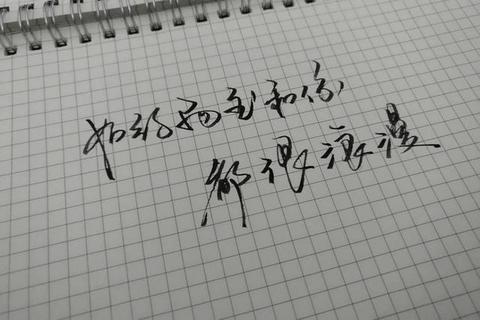 如约而至和你
都很浪漫